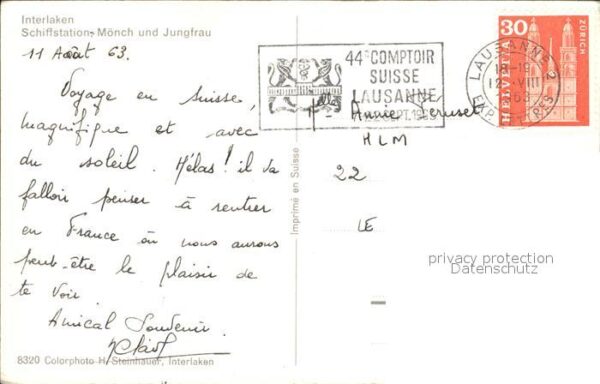 Interlaken
Schiffstation, Mönch und Jungfrau
11 Août 63.
Voyage en Suisse,
magnifique et avec
du soleil. Hélas! il va
falloir penser à rentrer
en France où nous aurons
peut-être le plaisir de
te voir.
Amical Souvenir.
8320 Colorphoto H. Steinhauer, Interlaken
Imprimé en Suisse
44e COMPTOIR
SUISSE
LAUSANNE
22 SEPT. 1963
LAUSANNE 2
18-19
12.VIII
63
EXP. LET.
30
HELVETIA
ZÜRICH
Melle Annie
HLM
22
LE
privacy protection
Datenschutz